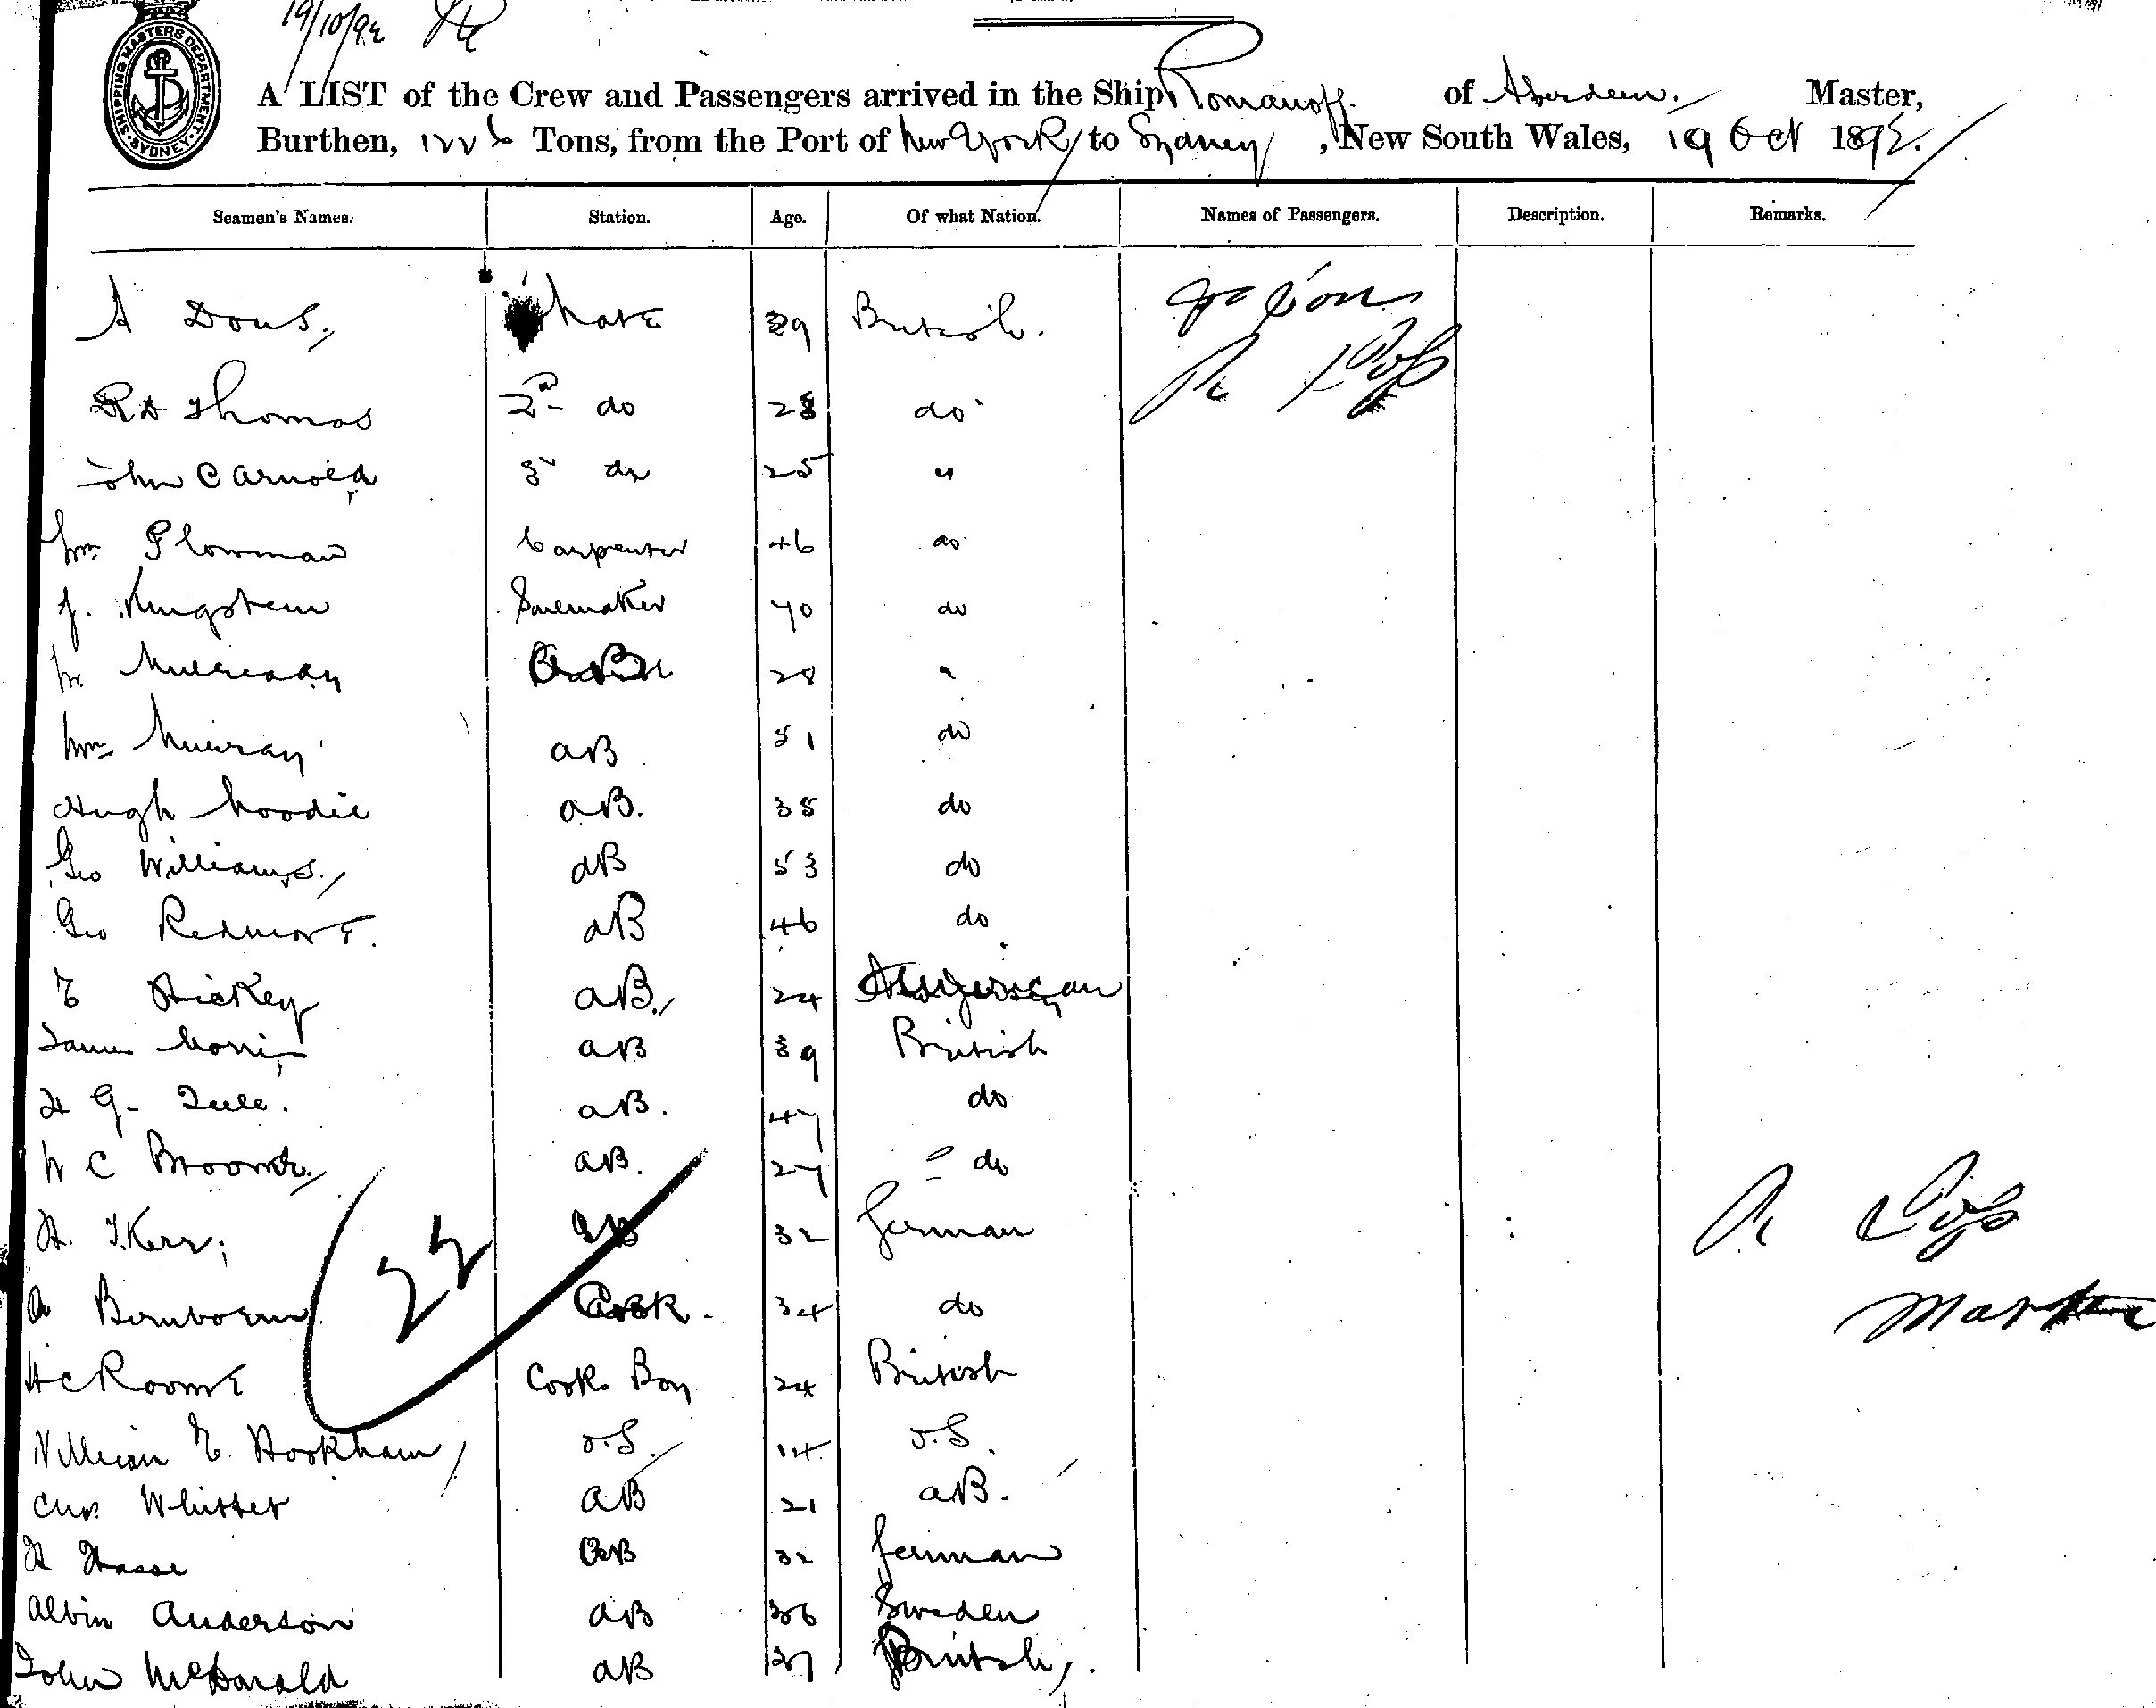 19/10/92
SHIPPING MASTERS DEPARTMENT SYDNEY
A LIST of the Crew and Passengers arrived in the Ship Romanoff of Aberdeen Master,
Burthen, 1226 Tons, from the Port of New York to Sydney, New South Wales, 19 Oct 1892.
Seamen's Names. Station. Age. Of what Nation. Names of Passengers. Description. Remarks.
A Mate 39 British.
R A Thomas 2nd do 28 do
John C Arnold 3 do 25 "
Wm Plowman Carpenter 46 do
J. Kingston Sailmaker 40 do
28 "
Wm Murray AB 51 do
Hugh Moodie AB. 35 do
Geo Williams, AB 53 do
Geo Redmore. AB 46 do
E Hickey AB. 24
James Morris AB 39 British
H G. AB. 47 do
W C AB. 27 do
H. Kerr AB 32 German
A Birnboim Cook. 34 do
H C Roome Cooks Boy 24 British
22
William E. Hookham O.S. 14 O.S.
Chas Whittet AB 21 AB.
H Hasse AB 32 German
Albin Anderson AB 36 Sweden
John McDonald AB 37 British